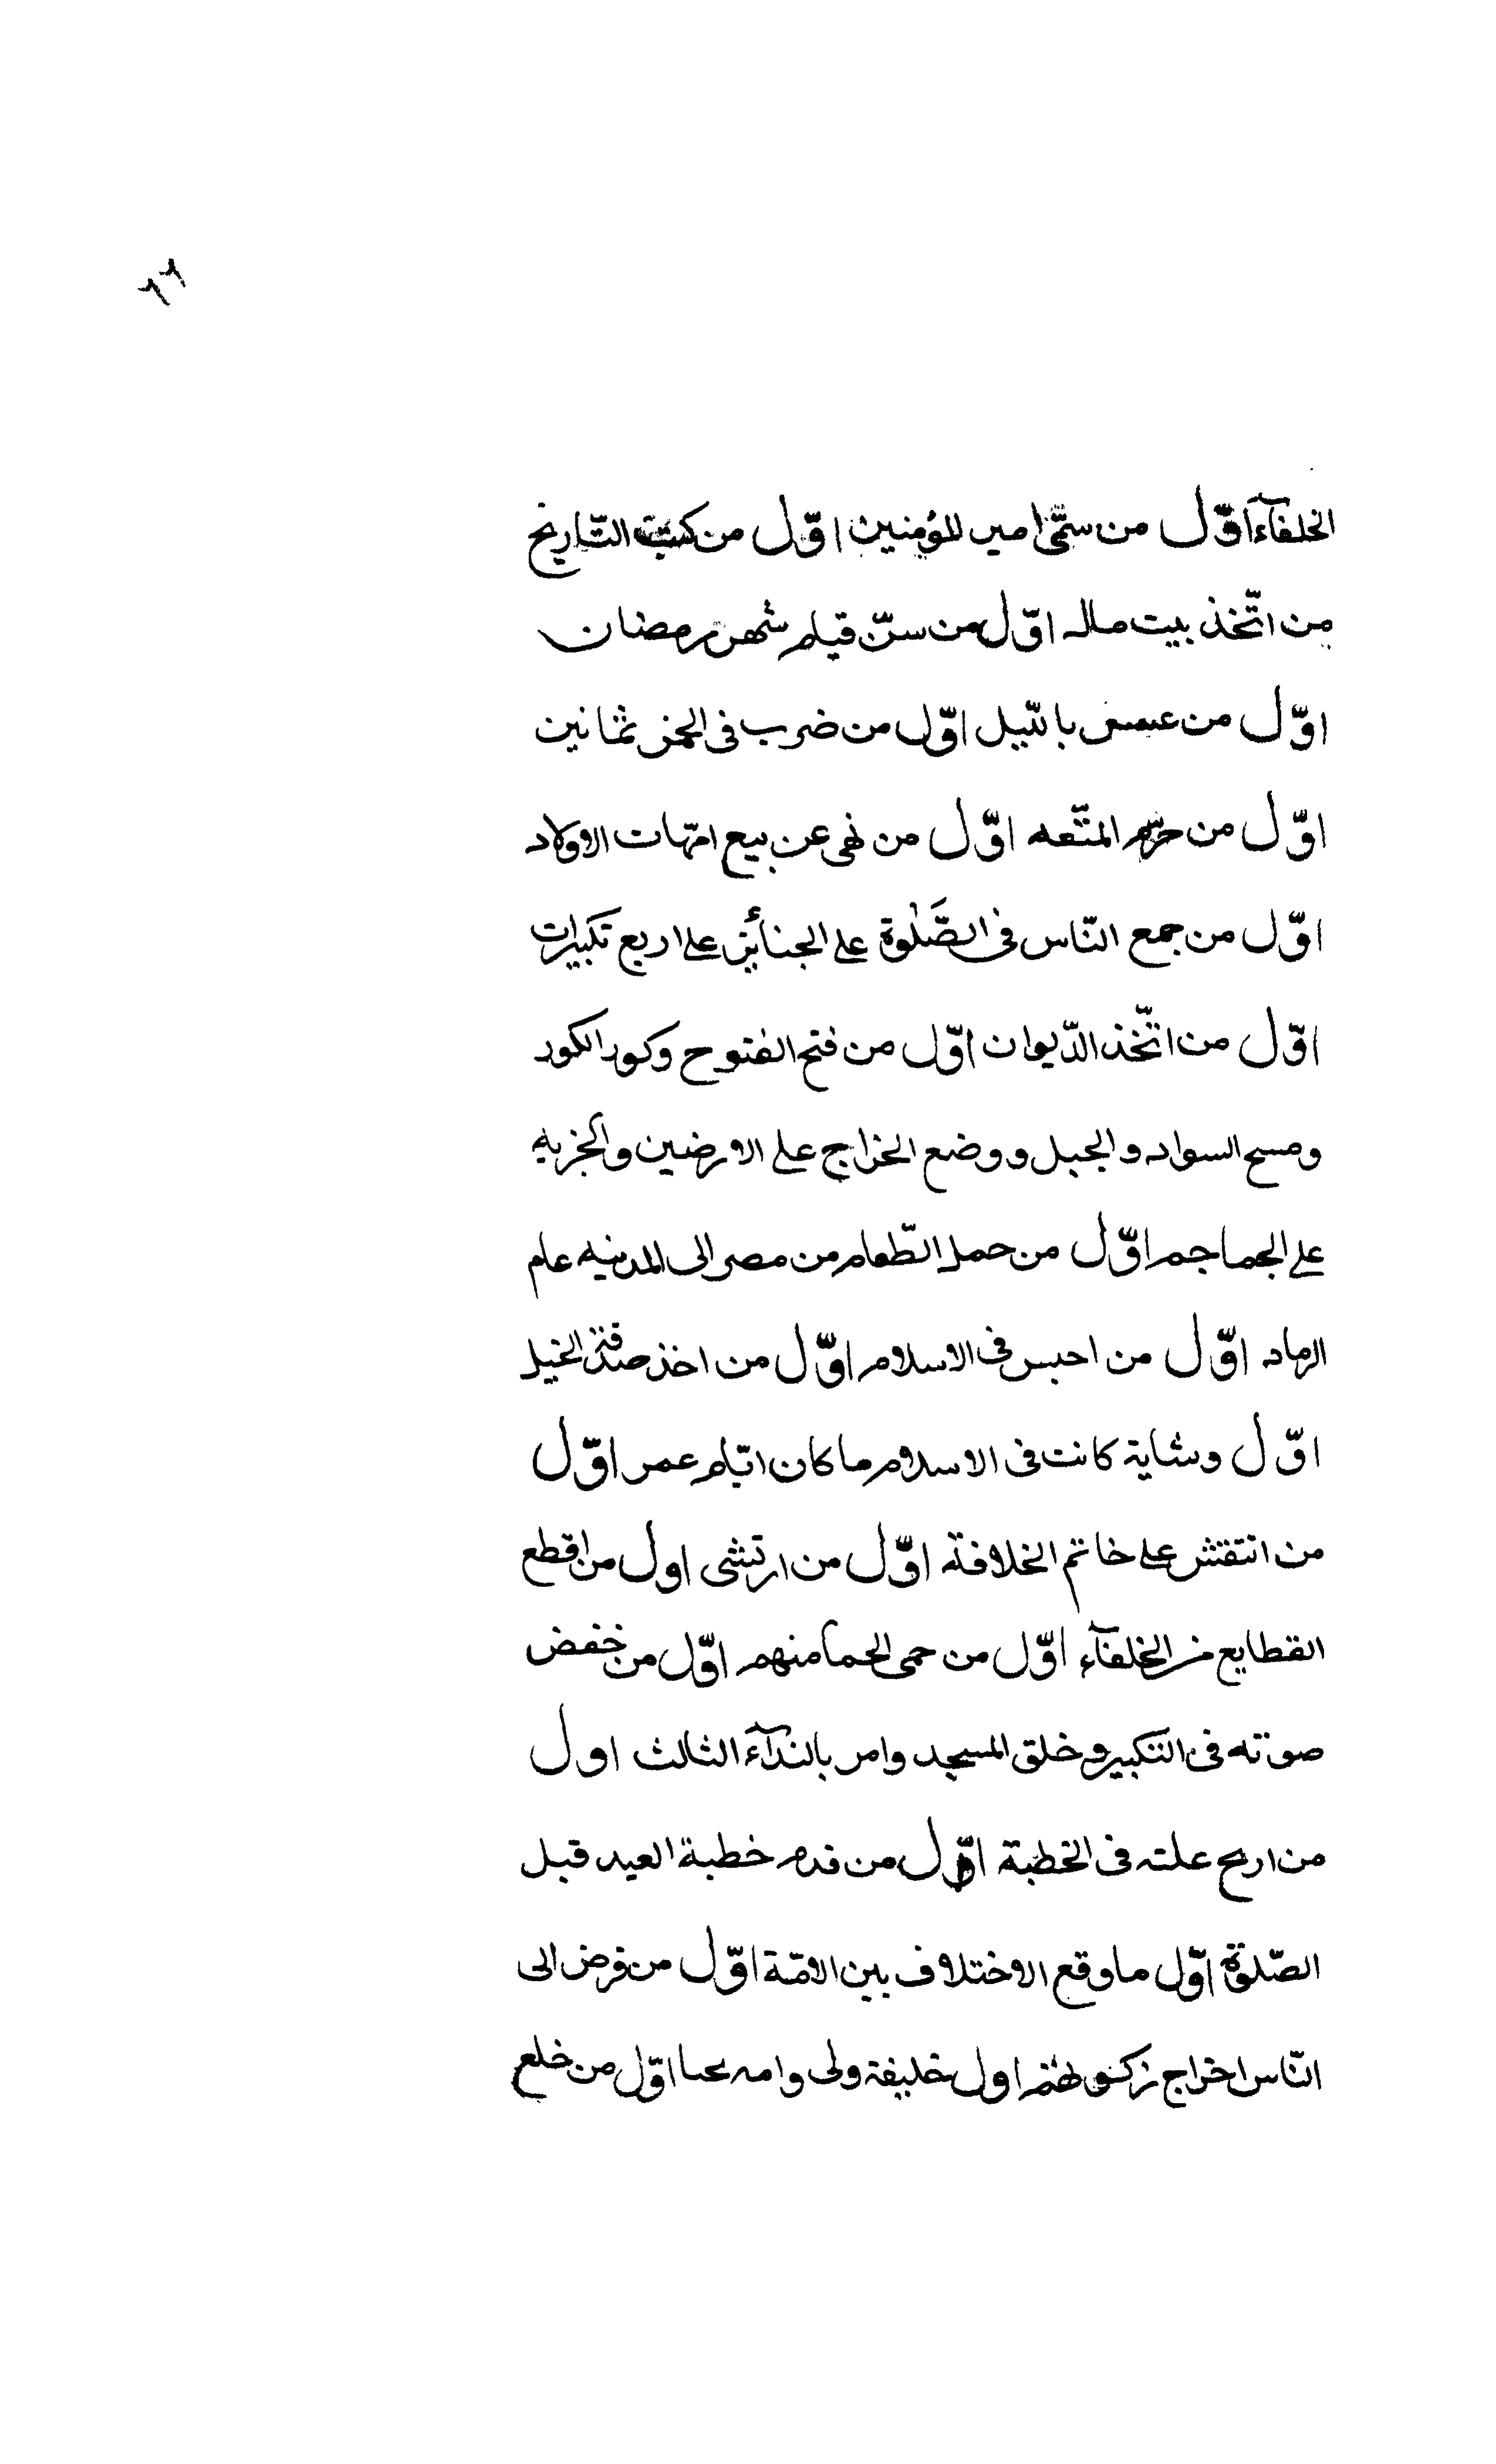 ٢٢
الخلفآء اوّل من سمّى امير المؤمنين اوّل من كتب التّاريخ
من اتّخذ بيت مال اوّل من سنّ قيام شهر رمضان
اوّل من عسس باللّيل اوّل من ضرب فى الخمر ثمانين
اوّل من حرّم المتّعه اوّل من نهى عن بيع امّهات الاولاد
اوّل من جمع النّاس فى الصَّلوة على الجنائز على اربع تكبيرات
اوّل من اتّخذ الدّيوان اوّل من فتح الفتوح وكور الكور
ومسح السواد والجبل ووضع الخراج على الارضين والجزيه
على الجماجم اوّل من حمل الطّعام من مصر الى المدينه عام
الرماد اوّل من احبس فى الاسلام اوّل من اخذ صدقة الخيل
اوّل وشاية كانت فى الاسلام ما كان ايّام عمر اوّل
من انتقش على خاتم الخلافة اوّل من ارتشى اول من اقطع
القطايع من الخلفآء اوّل من حمى الحما منهم اوّل من خفض
صوته فى التكبير وخلق المسجد وامر بالندآء الثالث اول
من ارتج علته فى الخطبة اوّل من قدم خطبة العيد قبل
الصّلوة اوّل ما وقع الاختلاف بين الامّة اوّل من فرض الى
النّاس اخراج زكوتهم اول خليفة ولى وامه اوّل من خلع